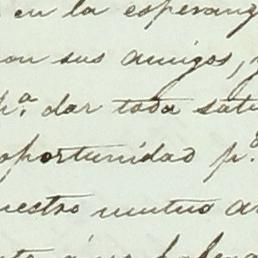 en la esperanz
on sus amigos, y
p.ª dar toda sati
oportunidad p.ª
uestro mutuo a